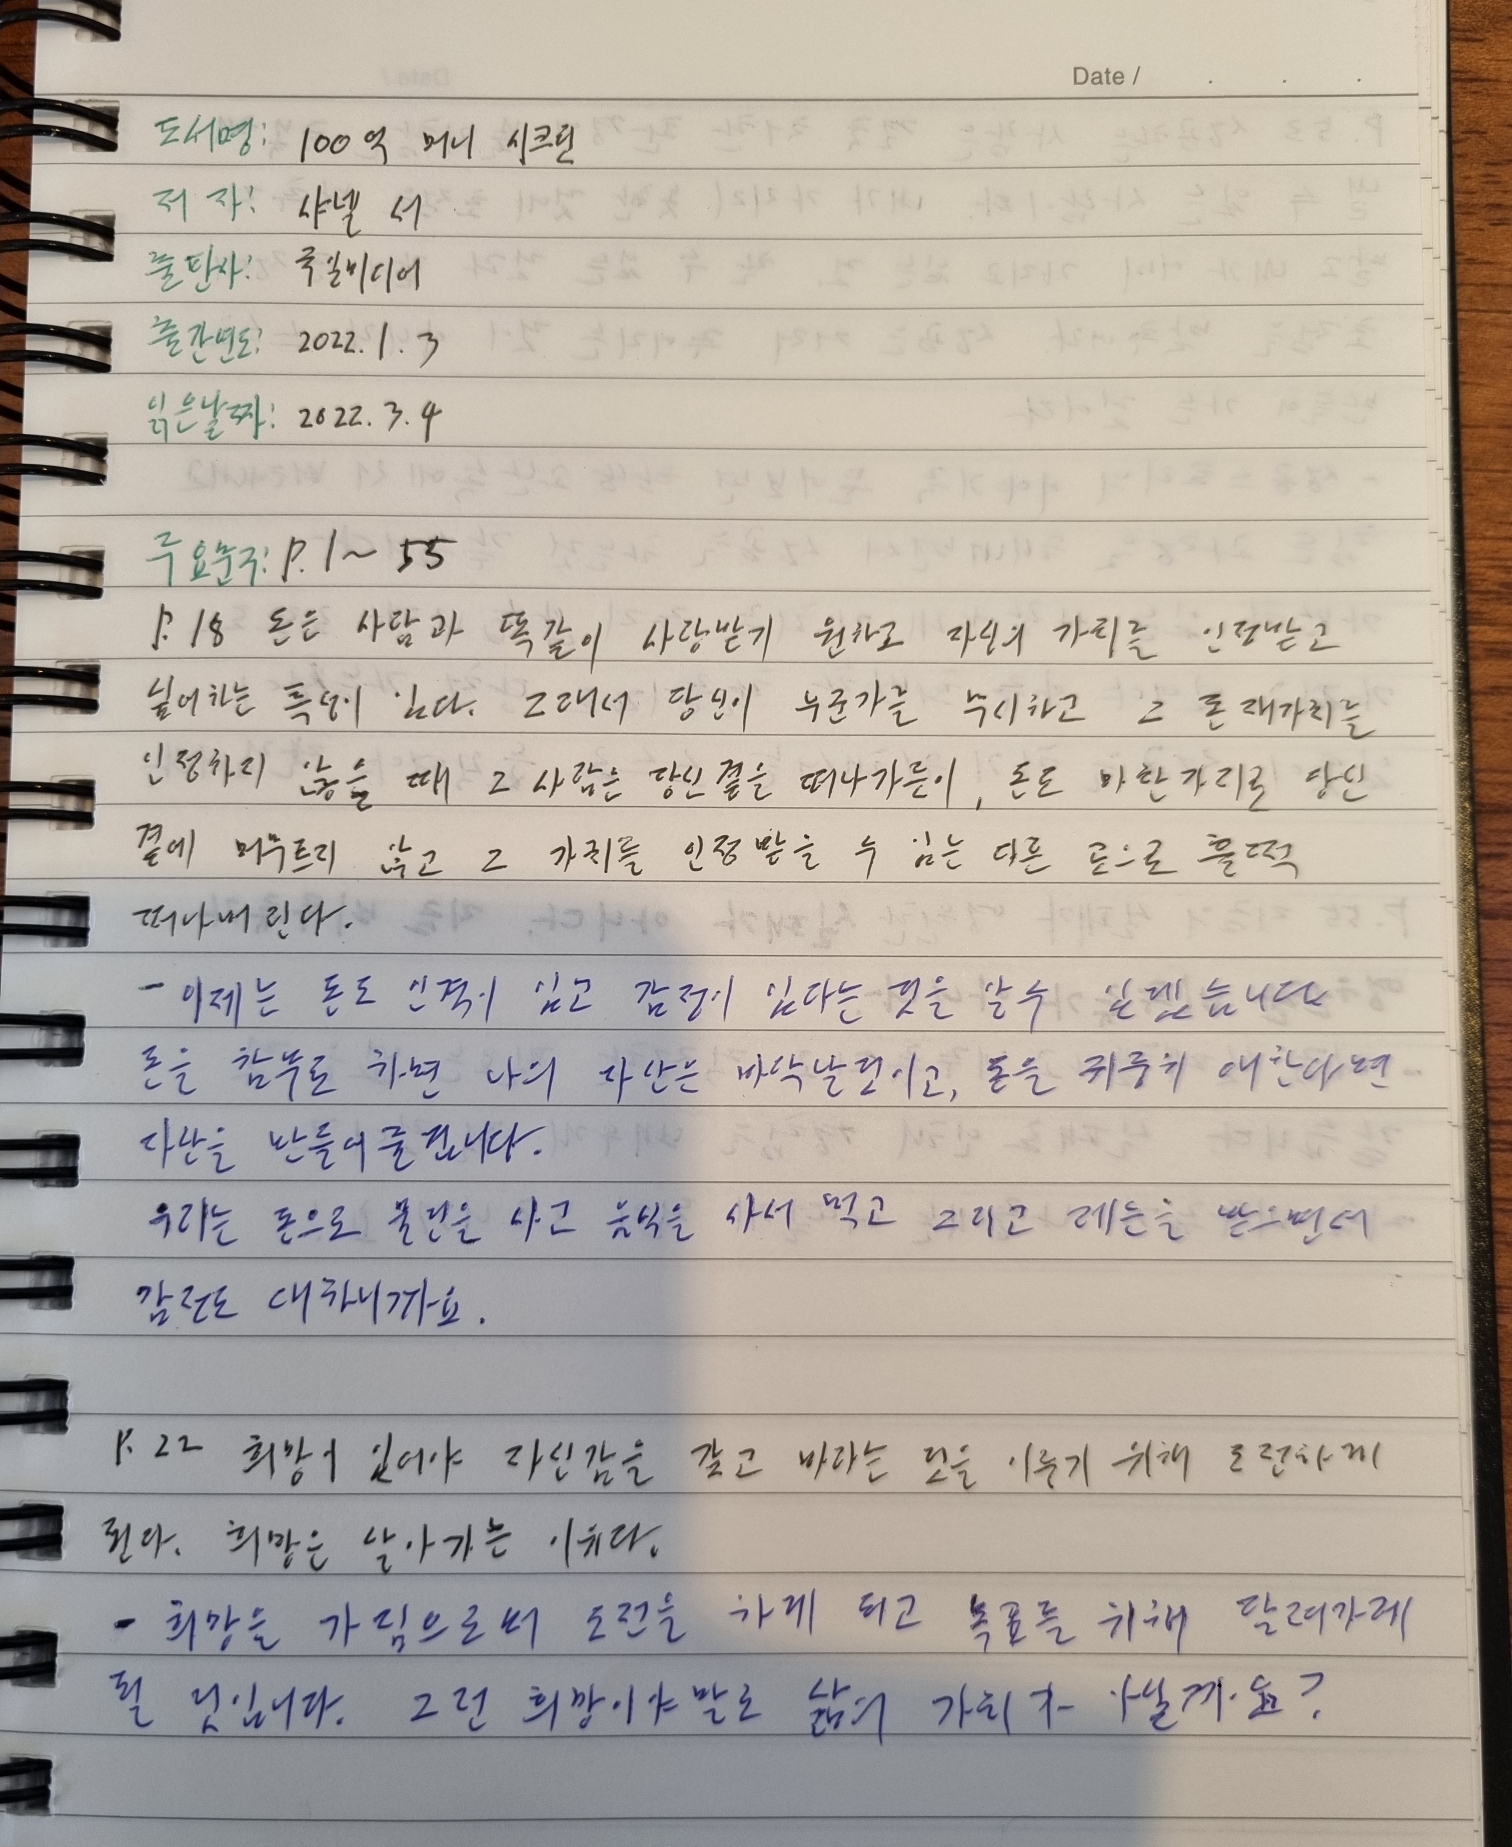 Date / . . .
도서명: 100억 머니 시크릿
저 자: 샤넬 서
출판사: 국일미디어
출간년도: 2022. 1. 3
읽은날짜: 2022. 3. 4
주요문구: P. 1 ~ 55
P. 18 돈은 사람과 똑같이 사랑받기 원하고 자신의 가치를 인정받고
싶어하는 특성이 있다. 그래서 당신이 누군가를 무시하고 그 존재가치를
인정하지 않을 때 그 사람은 당신곁을 떠나가듯이, 돈도 마찬가지로 당신
곁에 머무르지 않고 그 가치를 인정 받을 수 있는 다른 곳으로 훌쩍
떠나버린다.
- 이제는 돈도 인격이 있고 감정이 있다는 것을 알수 있겠습니다
돈을 함부로 하면 나의 자산은 바닥날것이고, 돈을 귀중히 대한다면
자산을 만들어줄겁니다.
우리는 돈으로 물건을 사고 음식을 사서 먹고 그리고 레슨을 받으면서
감정도 대하니까요.
P. 22 희망이 있어야 자신감을 갖고 바라는 것을 이루기 위해 도전하게
된다. 희망은 살아가는 이유다.
- 희망을 가짐으로써 도전을 하게 되고 목표를 위해 달려가게
될 것입니다. 그런 희망이야말로 삶의 가치가 아닐까요?